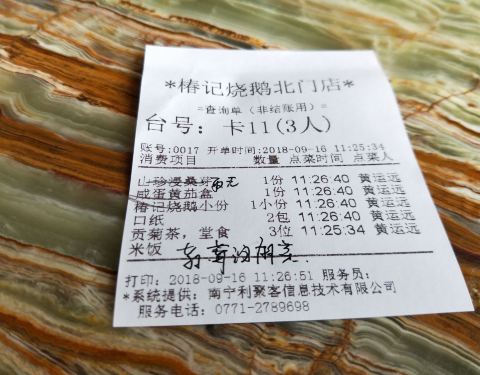 *椿记烧鹅北门店*
=查询单(非结账用)=
台号: 卡11(3人)
账号:0017 开单时间:2018-09-16 11:25:34
消费项目 数量 点菜时间 点菜人
山珍浸桑芽 1份 11:26:40 黄运远
咸蛋黄茄盒 1份 11:26:40 黄运远
椿记烧鹅小份 1小份 11:26:40 黄运远
口纸 2包 11:26:40 黄运远
贡菊茶，堂食 3位 11:25:34 黄运远
米饭
打印: 2018-09-16 11:26:51 服务员:
*系统提供: 南宁利聚客信息技术有限公司
服务电话: 0771-2789698